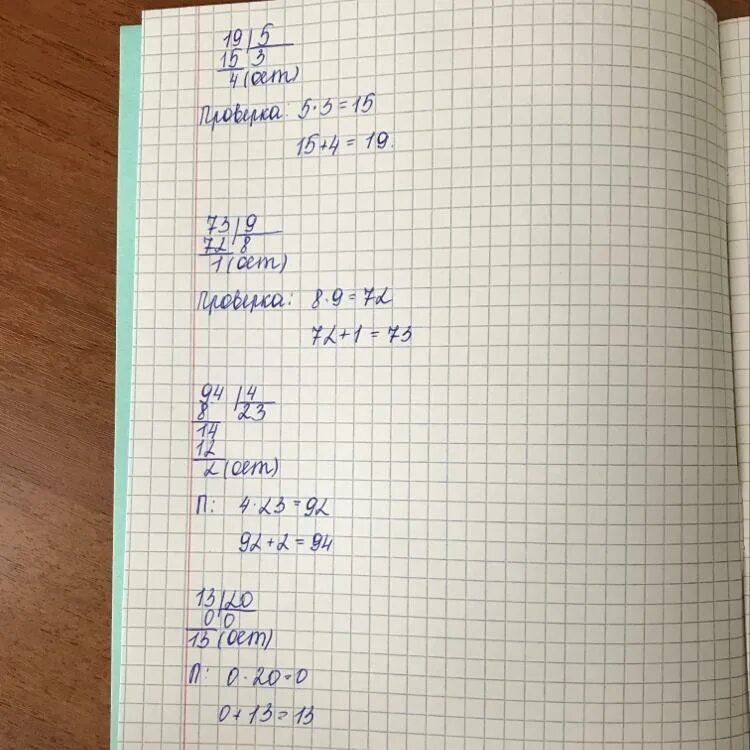 19|5
15 3
4(ост)
Проверка: 5·3=15
15+4=19.
73|9
72 8
1(ост)
Проверка: 8·9=72
72+1=73
94|4
8 23
14
12
2(ост)
П: 4·23=92
92+2=94
13|20
0 0
13(ост)
П: 0·20=0
0+13=13